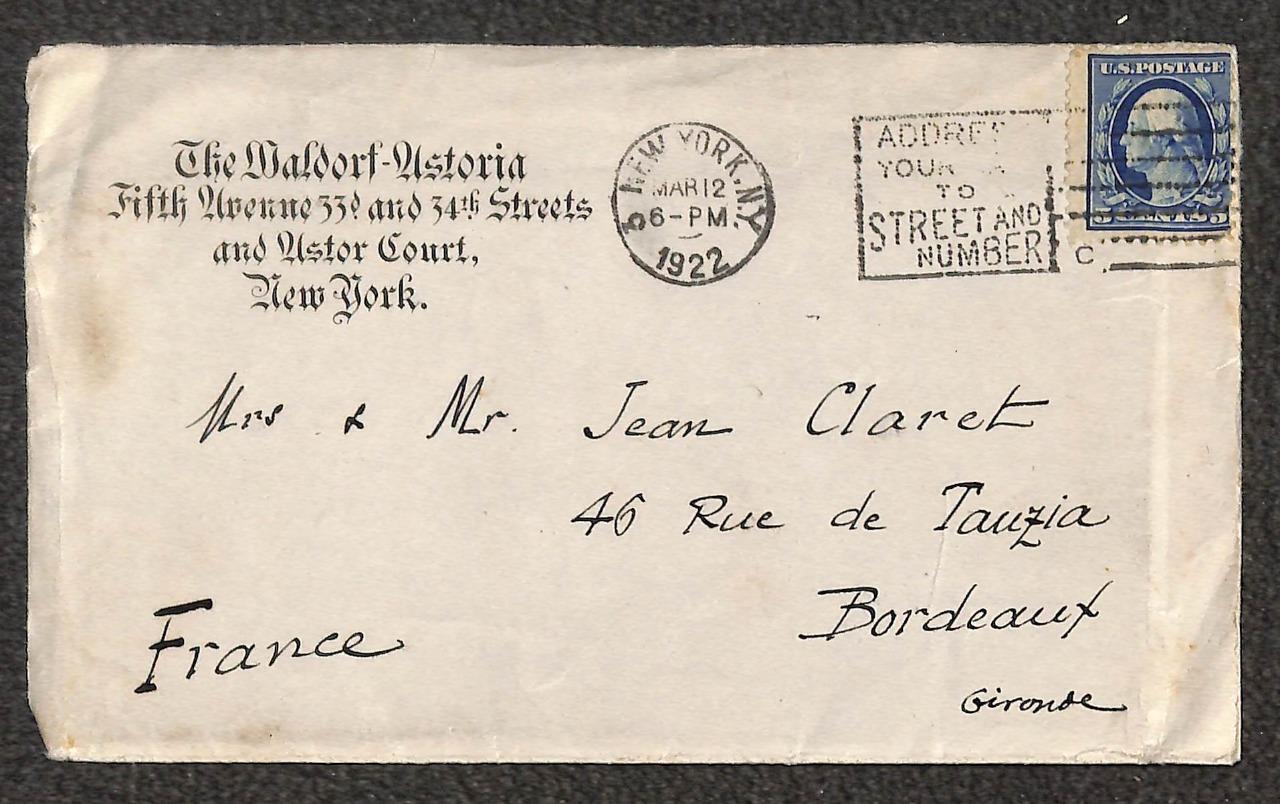 The Waldorf-Astoria
Fifth Avenue 33d and 34th Streets
and Astor Court,
New York.
NEW YORK, N.Y.
MAR 12
6-PM
1922
ADDRE
YOUR
TO
STREET AND
NUMBER
C
U.S. POSTAGE
5 CENTS 5
Mrs & Mr. Jean Claret
46 Rue de Tauzia
Bordeaux
Gironde
France